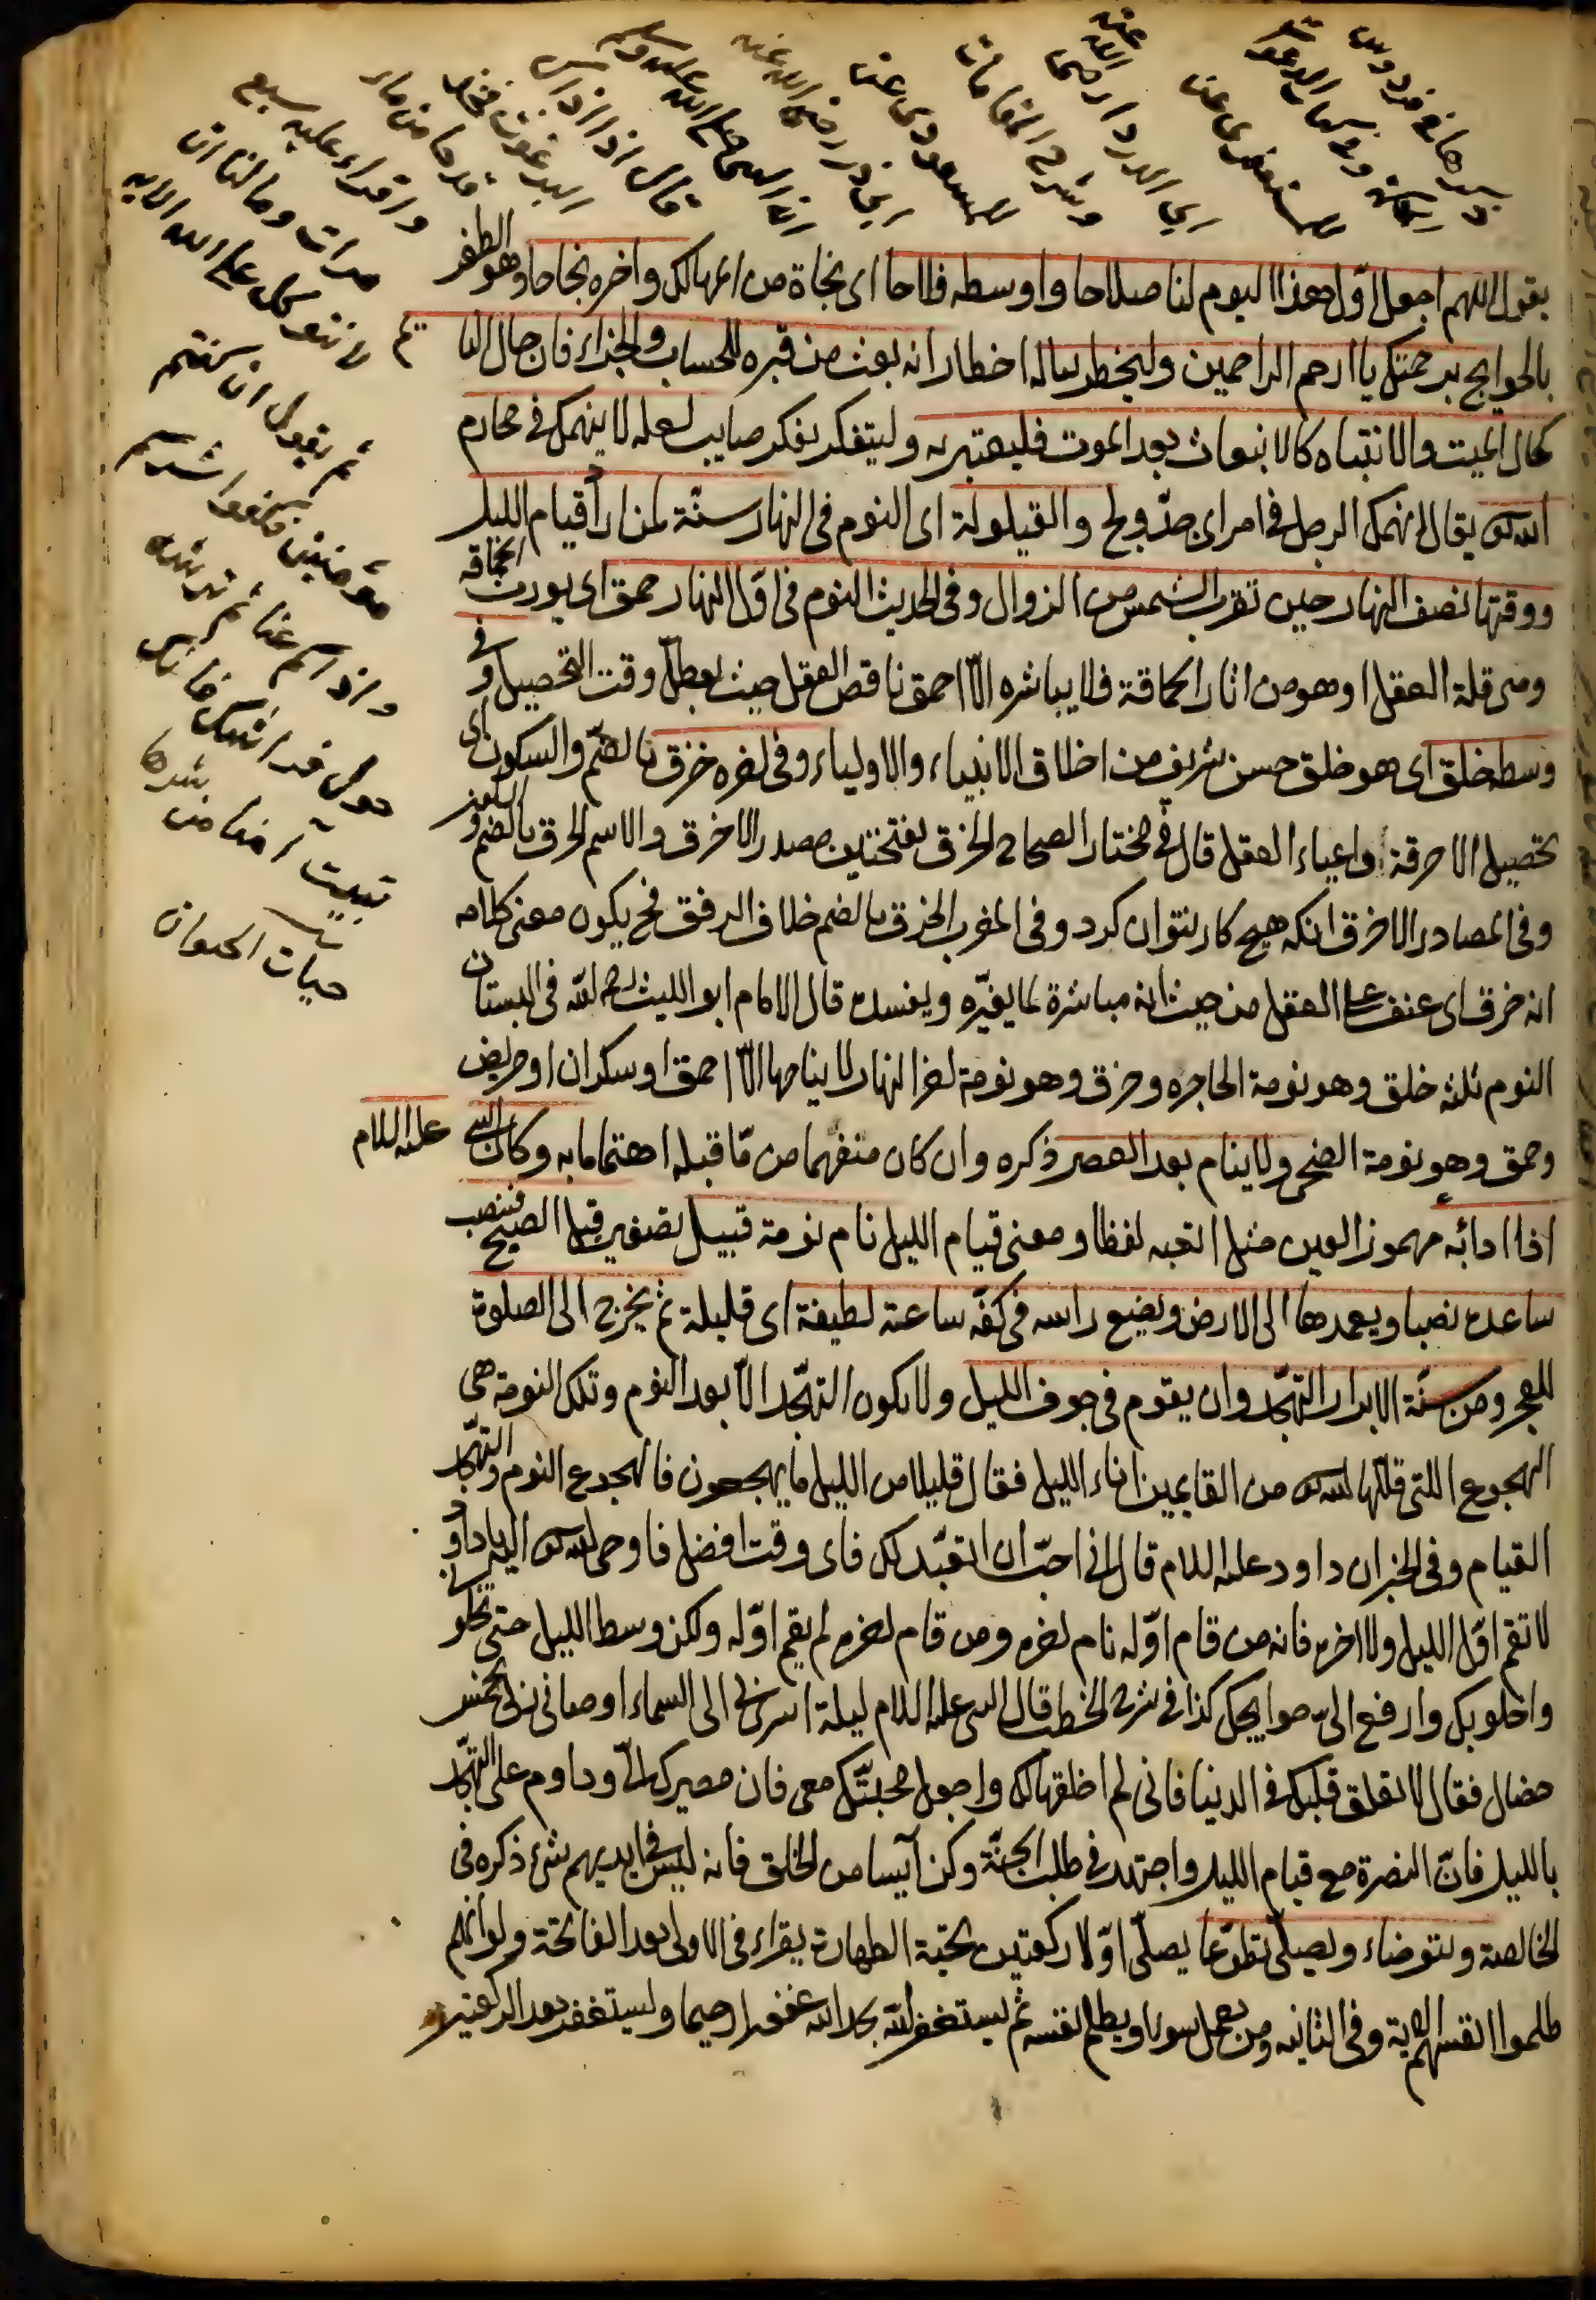 يقول اللهم اجعل اول هذا اليوم لنا صلاحا واوسطه فلاحا اى نجاة من المهالك واخره نجاحا وهو الظفر
بالحوايج برحمتك يا ارحم الراحمين وليخطر بباله اخطارا انه بعث من قبره للحساب والجزاء فان حال النايم
كحال الميت والانتباه كالانبعاث بعد الموت فليعتبر به وليتفكر بفكر صايب لعله لا ينهمك فى محارم
الله تع يقال انهمك الرجل فى امر اى جدّ ولج والقيلولة اى النوم فى النهار سنّة لمن اراد قيام الليل
ووقتها نصف النهار حين تقرب الشمس من الزوال وفى الحديث النوم فى اوّل النهار حمق اى يورث الحماقة
وهى قلة العقل او هو من اثار الحماقة فلا يباشره الّا احمق ناقص العقل حيث يعطلّ وقت التحصيل وفى
وسطه خلق اى هو خلق حسن شريف من اخلاق الانبياء والاولياء وفى اخره خرق بالضّم والسكون اى
تحصيل الاخرقة واعياء العقل قال فى مختار الصحاح الخرق بفتحتين مصدر الاخرق والاسم الخرق بالضم و
وفى المصادر الاخرق انكه هيچ كار نتوان كرد وفى المغرب الخرق بالضم خلاف الرفق فح يكون معنى كلامه
انه خرق اى عنف على العقل من حيث انه مباشرة لما يغيّره ويفسده قال الامام ابو الليث رحمه الله فى البستان
النوم ثلثه خلق وهو نومة الهاجره وخرق وهو نومة اخر النهار لا ينامها الّا احمق او سكران او مريض
وحمق وهو نومة الضحى ولا ينام بعد العصر ذكره وان كان منفهما من مّا قبله اهتماما به وكان النبى عليه السلام
اذا ادابّه مهموز العين مثل اتعبه لفظا ومعنى قيام الليل نام نومة قبيل بتصغير قبل الصبح فينصب
ساعده نصبا ويعمدها الى الارض ويضع راسه فى كفّه ساعة لطيفة اى قليلة ثم يخرج الى الصلوة
للفجر ومن سنّة الابرار التهجّد وان يقوم فى جوف الليل ولا يكون التهجّد الّا بعد النوم وتلك النومة هى
الهجوع اللتى قللها الله تع من القايمين اناء الليل فقال قليلا من الليل ما يهجعون فالهجوع النوم والتهجّد
القيام وفى الخبر ان داود عليه السلام قال انى احبّ ان اتعبّد لك فاى وقت افضل فاوحى الله تع اليه يا داود
لا تقم اوّل الليل ولا اخره فانه من قام اوّله نام اخره ومن قام اخره لم يقم اوّله ولكن وسط الليل حتى تخلو بى
واخلو بك وارفع الىّ حوايجك كذا فى شرح الخطب قال النبى عليه السلام ليلة اسرى بى الى السماء اوصانى ربى بخمس
خصال فقال لا تعلق قلبك فى الدنيا فانى لم اخلقها لك واجعل محبّتك معى فان مصيرك الىّ وداوم على التهجّد
بالليل فانّ النصرة مع قيام الليل واجتهد فى طلب الجنّة وكن آيسا من الخلق فانه ليس فى ايديهم شئ ذكره فى
الخالصة ويتوضاء ويصلّى تطوّعا يصلّى اوّلا ركعتين تحيّة الطهارة يقراء فى الاولى بعد الفاتحة ولو انهم
ظلموا انفسهم الاية وفى الثانيه ومن يعمل سوءا او يظلم نفسه ثم يستغفر الله يجد الله غفورا رحيما ويستغفر بعد الركعتين
السعودى عن
ابى ذر رضى الله عنه
ان النبى صلى الله عليه وسلم
قال اذا اذاك
البرغوث فخذ
قدحا من ماء
واقراء عليه سبع
مرات وما لنا ان
لا نتوكل على الله الايه
ثم يقول ان كنتم
مؤمنين فكفوا شركم
واذاكم عنا ثم ترشه
حول فراشك فانك
تبيت آمنا من شرها
حيات الحيوان